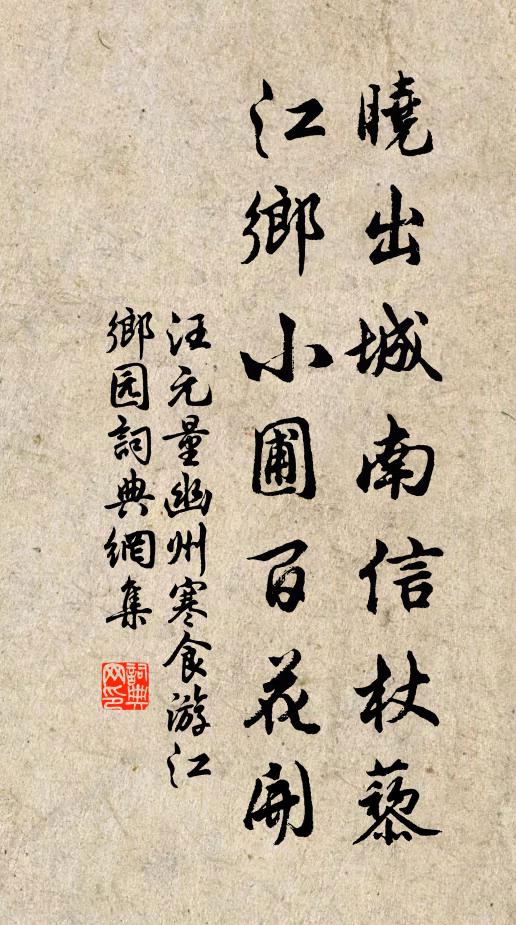 曉出城南信杖藜
江鄉小圃百花開
汪元量幽州寒食游江
鄉园詞典網集
詞典
网印